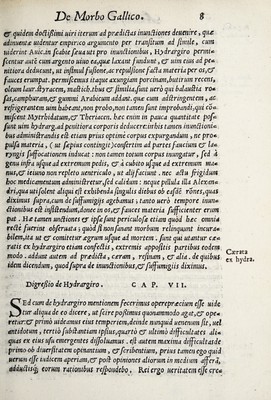 De Morbo Gallico. 8
& quidem doctissimi uiri iterum ad prædictas inunctiones deuenire, quæ
adinuentæ uidentur empirico argumento per transitum ad simile, cum
uiderint Auic. in scabie seua uti pro inunctionibus, Hydrargiro permi-
scentur autē cum argento uiuo ea, quæ laxant fundunt, & uim eius ad pe-
nitiora deducunt, ut in simul fusione, ac repulsione facta materia per os, &
fauces erumpat. permiscemus itaque axungiam porcinam, butirum recens,
oleum laur. styracem, mastich. thus & similia. sunt uero qui
& gummi Arabicum addant. quæ cum astringentem, ac
refrigerantem uim habeant, non probo, non tamen sunt improbandi, qui cō-
miscent Myrthidatum, & Theriacen. hec enim in pauca quantitate pos-
sunt uim hydrarg. ad penitiora corporis deducere. in his tamen inunctioni-
bus administrandis est etiam prius optime corpus expurgandum, ne pro-
pulsa materia, (ut sæpius contingit) confertim ad partes faucium & la-
ryngis suffocationem inducat: non tamen totum corpus inungitur, sed à
genu infra usque ad extremum pedis, & à cubito usque ad extremum ma-
nus, & ieiuno non repleto uentriculo, ut alij faciunt. nec actu frigidum
hoc medicamentum administretur, sed calidum: neque pillula illa Alexan-
drij, qua
diximus supra, cum de suffumigijs agebamus; tanto uero tempore inun-
ctionibus est insistendum, donec in os, & fauces materia sufficienter erum
pat. Hæ tamen unctiones & ipsæ sunt periculosæ etiam quod licet omnia
recte fuerint obseruata; quòd si non sanant morbum relinquunt incura-
bilem, ita ut & comitetur ægrum usque ad mortem. sunt qui utantur cæ-
ratis ex hydrargiro etiam confectis, extremis appositis partibus eodem
modo. addunt autem ad prædicta, ceram, resinam, & alia. de quibus
idem dicendum, quod supra de inunctionibus, & suffumigiis diximus.
Cærata
ex hydra.
Digressio de Hydrargiro. CAP. VII.
Sed cum de hydrargiro mentionem fecerimus operæprecium esse uide
tur aliqua de eo dicere, ut scire possimus quonammodo agat, & ope-
retur: & primò uidamus eius temperiem, deinde nunquid uenenum sit, uel
antidotum, tertiò substantiam ipsius, quartò & ultimò difficultates ali-
quas ex eius usu emergentes dissoluamus. est autem maxima difficultas de
primo ob diuersitatem opinantium, & scribentium, prius tamen ego quid
uerum esse iudicem aperiam, & post opiniones aliorum in medium afferā,
adductisque eorum rationibus respondebo. Rei ergo ueritatem esse cre-